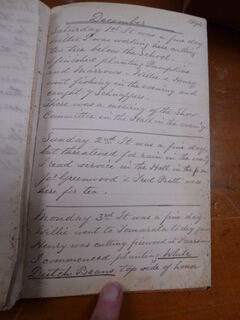 December
Saturday 1st. It was a fine day
Willie & was working here cutting
tea tree below the School.
I finished planting Pumpkins
and Marrows - Willie & Henry
went fishing in the evening and
caught 7 Schnappers.
There was a meeting of the Show
Committee in the Hall in the evening
Sunday 2nd. It was a fine day
but threatened for rain in the evening
I read service in the Hall in the
for Greenwood & Fred Pratt were
here for tea.
Monday 3rd. It was a fine day
Willie went to Tomarata to
Henry was cutting firewood
I commenced planting White
Dutch Beans top side of house